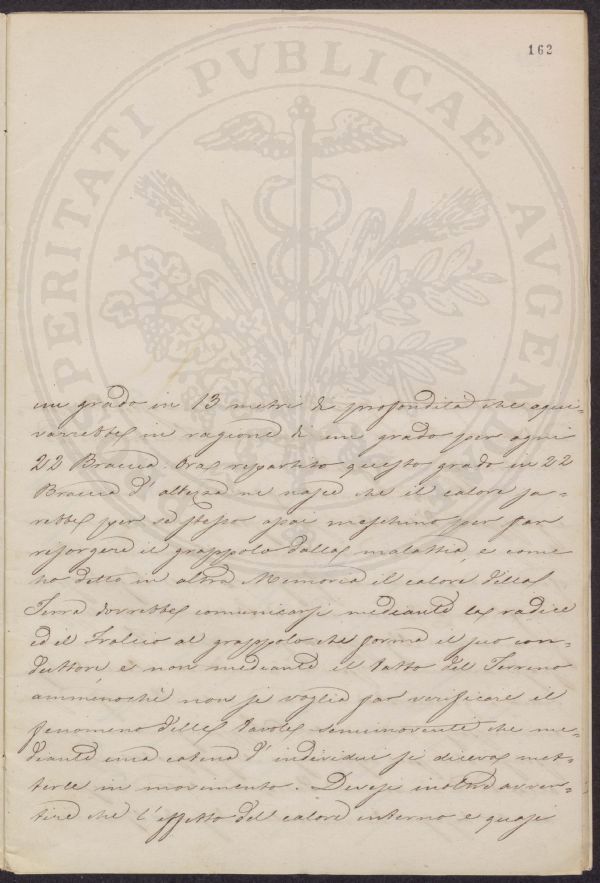 162
PROSPERITATI PVBLICAE AVGENDAE
un grado in 13 metri di profondità che equi-
varrebbe in ragione di un grado per ogni
22 Braccia. Ora repartito questo grado in 22
Braccia d'altezza ne nasce che il calore sa-
rebbe per sè stesso assai meschino per far
risorgere il grappolo dalla malattia, e come
ho detto in altra Memoria il calore della
Terra dovrebbe comunicarsi mediante la radice
ed il Tralcio al grappolo che forma il suo con-
duttore e non mediante il tatto del Terreno
ammenochè non si voglia far verificare il
fenomeno delle tavole semimoventi che me-
diante una catena d'individui si diceva met-
terle in movimento. Devesi inoltre avver-
tire che l'effetto del calore interno e quasi